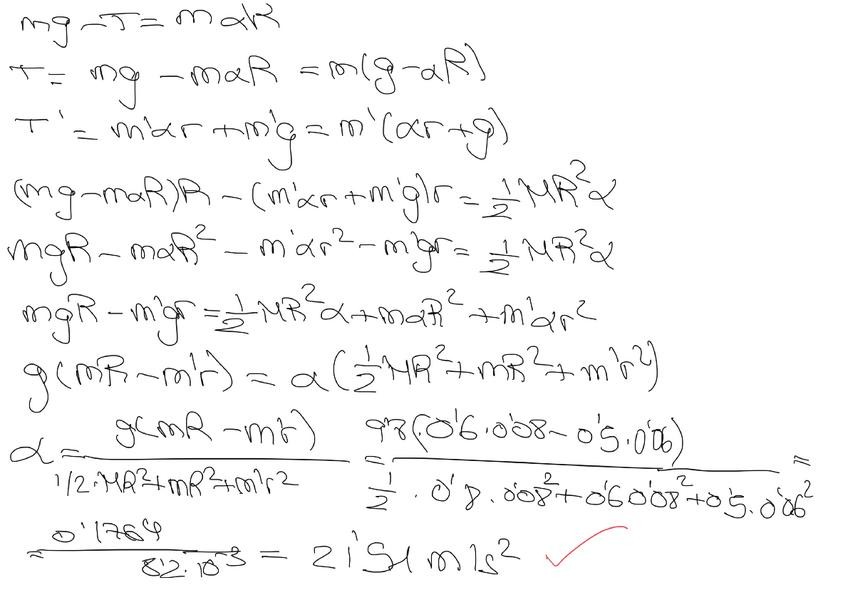 mg - T = mαR
T = mg - mαR = m(g - αR)
T' = m'αr + m'g = m'(αr + g)
(mg - mαR)R - (m'αr + m'g)r = 1/2 MR²α
mgR - mαR² - m'αr² - m'gr = 1/2 MR²α
mgR - m'gr = 1/2 MR²α + mαR² + m'αr²
g(mR - m'r) = α(1/2 MR² + mR² + m'r²)
α = g(mR - m'r) / 1/2·MR² + mR² + m'r² = 9'8(0'6·0'08 - 0'5·0'06) / 1/2 · 0'8 · 0'08² + 0'6 0'08² + 0'5·0'06² =
= 0'1764 / 8'2·10⁻³ = 21'51 m/s²